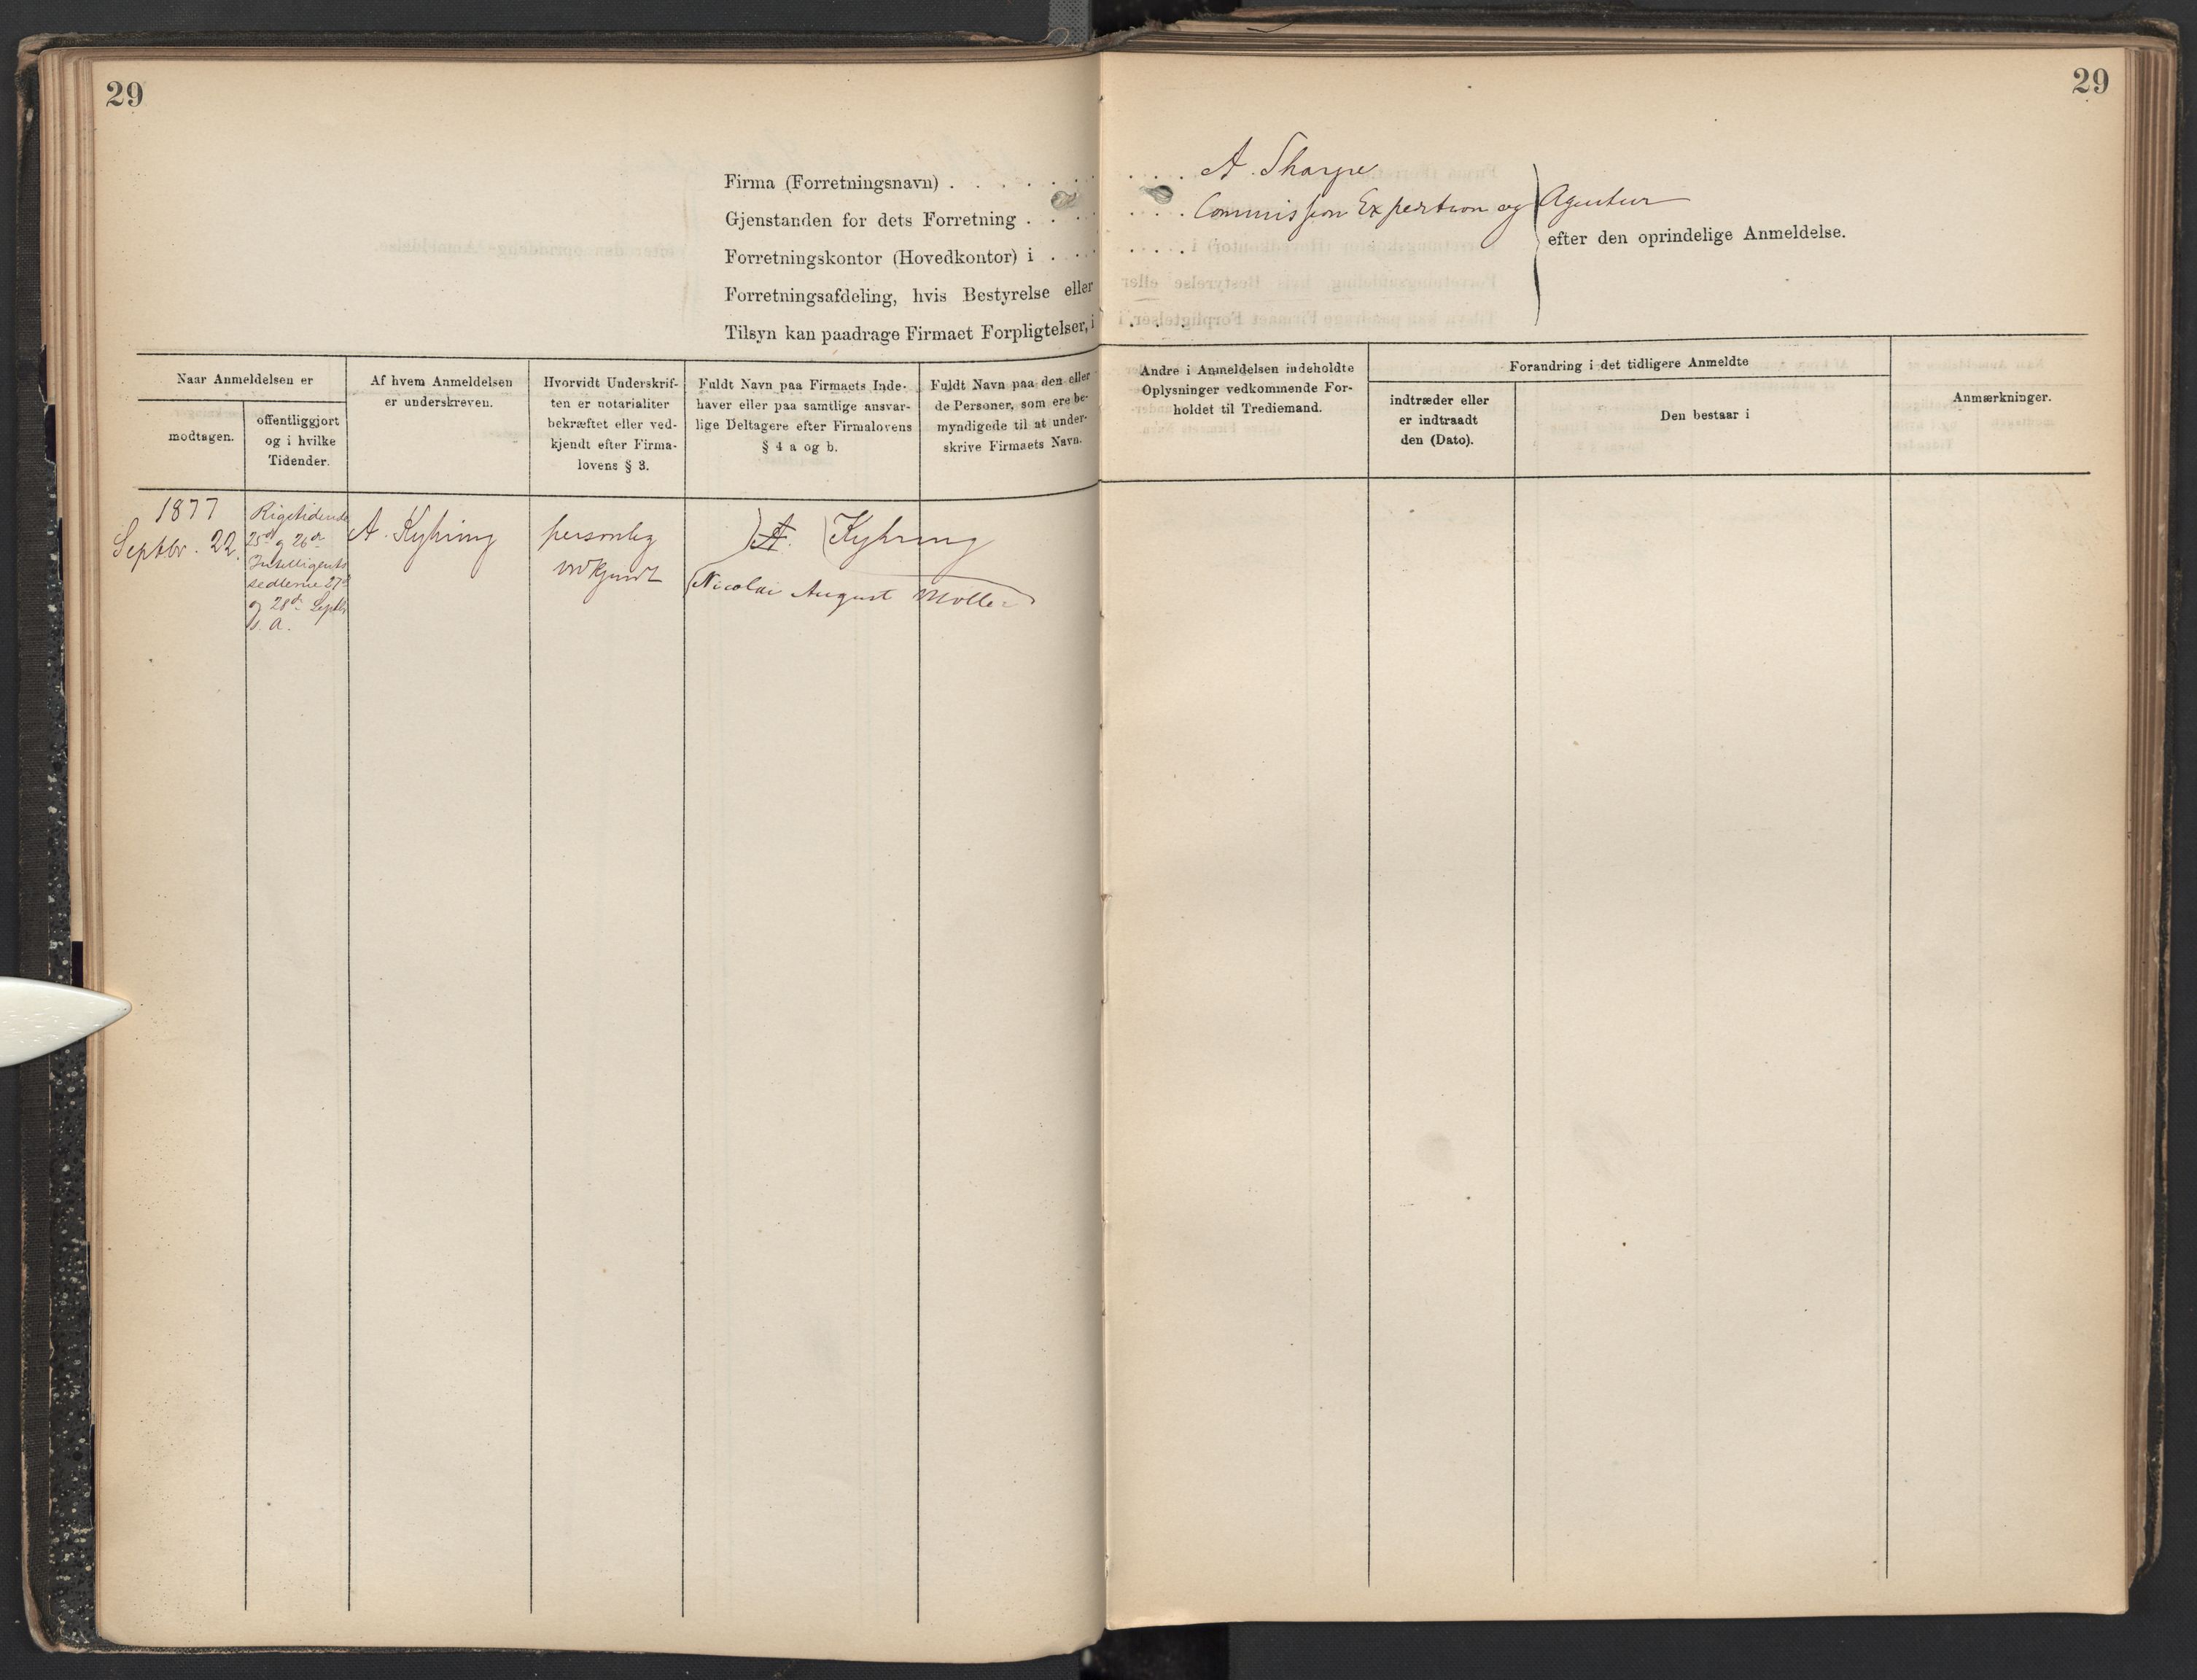 29
29
Firma (Forretningsnavn) . . . . . . . . . . . A. Sharpe
Gjenstanden for dets Forretning . . . . . . . . Commission Expedition og Agentur
Forretningskontor (Hovedkontor) i . . . . . . . .
efter den oprindelige Anmeldelse.
Forretningsafdeling, hvis Bestyrelse eller
Tilsyn kan paadrage Firmaet Forpligtelser, i . . .
Naar Anmeldelsen er
modtagen.
offentliggjort
og i hvilke
Tidender.
Af hvem Anmeldelsen
er underskreven.
Hvorvidt Underskrif-
ten er notarialiter
bekræftet eller ved-
kjendt efter Firma-
lovens § 3.
Fuldt Navn paa Firmaets Inde-
haver eller paa samtlige ansvar-
lige Deltagere efter Firmalovens
§ 4 a og b.
Fuldt Navn paa den eller
de Personer, som ere be-
myndigede til at under-
skrive Firmaets Navn.
Andre i Anmeldelsen indeholdte
Oplysninger vedkommende For-
holdet til Trediemand.
Forandring i det tidligere Anmeldte
indtræder eller
er indtraadt
den (Dato).
Den bestaar i
Anmærkninger.
1877
Septbr. 22.
Rigstidende
25d og 26de
Intelligents
sedlerne 27d
og 28de Septbr
s. a.
A. Kyhring
personlig
vedkjendt
A. Kyhring
Nicolai August Møller